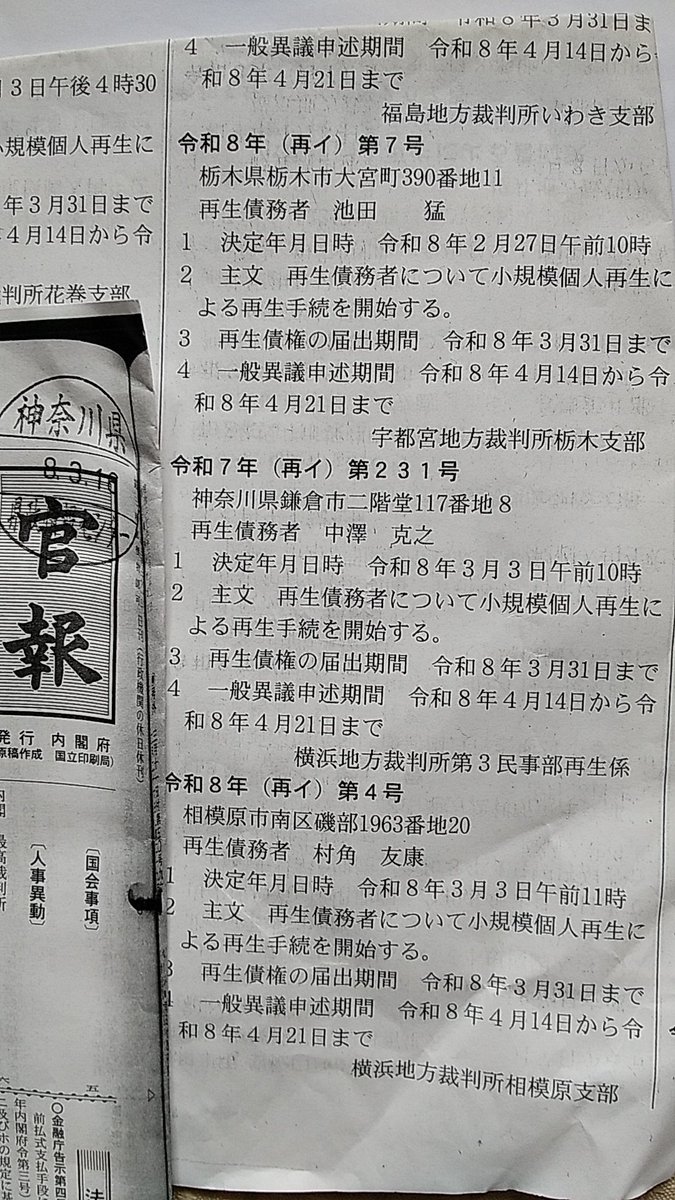 4　一般異議申述期間　令和8年4月14日から
和8年4月21日まで
福島地方裁判所いわき支部
令和8年（再イ）第7号
栃木県栃木市大宮町390番地11
再生債務者　池田　猛
1　決定年月日時　令和8年2月27日午前10時
2　主文　再生債務者について小規模個人再生に
よる再生手続を開始する。
3　再生債権の届出期間　令和8年3月31日まで
4　一般異議申述期間　令和8年4月14日から令
和8年4月21日まで
宇都宮地方裁判所栃木支部
令和7年（再イ）第231号
神奈川県鎌倉市二階堂117番地8
再生債務者　中澤　克之
1　決定年月日時　令和8年3月3日午前10時
2　主文　再生債務者について小規模個人再生に
よる再生手続を開始する。
3　再生債権の届出期間　令和8年3月31日まで
4　一般異議申述期間　令和8年4月14日から令
和8年4月21日まで
横浜地方裁判所第3民事部再生係
令和8年（再イ）第4号
相模原市南区磯部1963番地20
再生債務者　村角　友康
1　決定年月日時　令和8年3月3日午前11時
2　主文　再生債務者について小規模個人再生に
よる再生手続を開始する。
3　再生債権の届出期間　令和8年3月31日まで
4　一般異議申述期間　令和8年4月14日から令
和8年4月21日まで
横浜地方裁判所相模原支部
3日午後4時30
規模個人再生に
年3月31日まで
4月14日から令
判所花巻支部
神奈川県
8.3.
官報
発行　内閣府
原稿作成　国立印刷局)
(行政機関の休日休刊)
〔国会事項〕
〔人事異動〕
内閣
最高裁判所
五
六
〇金融庁告示第四
前払式支払手段
年内閣府令第三号)
法